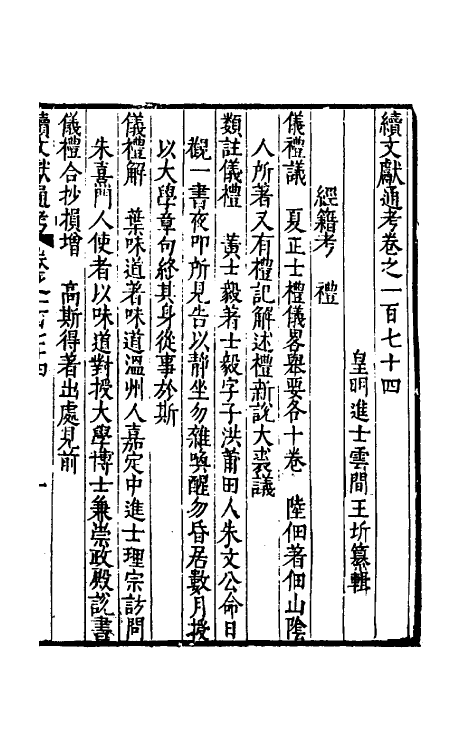 續文獻通考卷之一百七十四
皇明進士雲間王圻纂輯
經籍考 禮
儀禮議 夏正士禮儀畧舉要各十卷 陸佃著佃山陰
人所著又有禮記解述禮新說大裘議
類註儀禮 黃士毅著士毅字子洪莆田人朱文公命日
觀一書夜叩所見告以靜坐勿雜喚醒勿昏居數月授
以大學章句終其身從事於斯
儀禮解 葉味道著味道溫州人嘉定中進士理宗訪問
朱熹門人使者以味道對授大學博士兼崇政殿說書
儀禮合抄損增 高斯得著出處見前
續文獻通考 卷之一百七十四 一